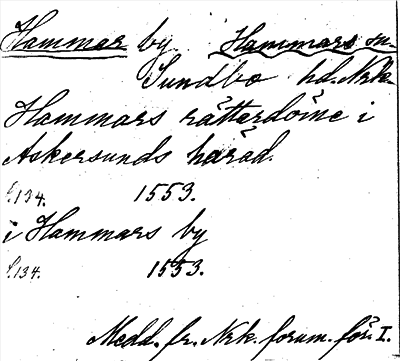 Hammar by Hammars sn.
Sundbo hd. Nrk.
Hammars rätterdöme i
Askersunds härad.
f. 134. 1553.
i Hammars by
f. 134. 1553.
Medd. fr. Nrk. fornm. för. I.